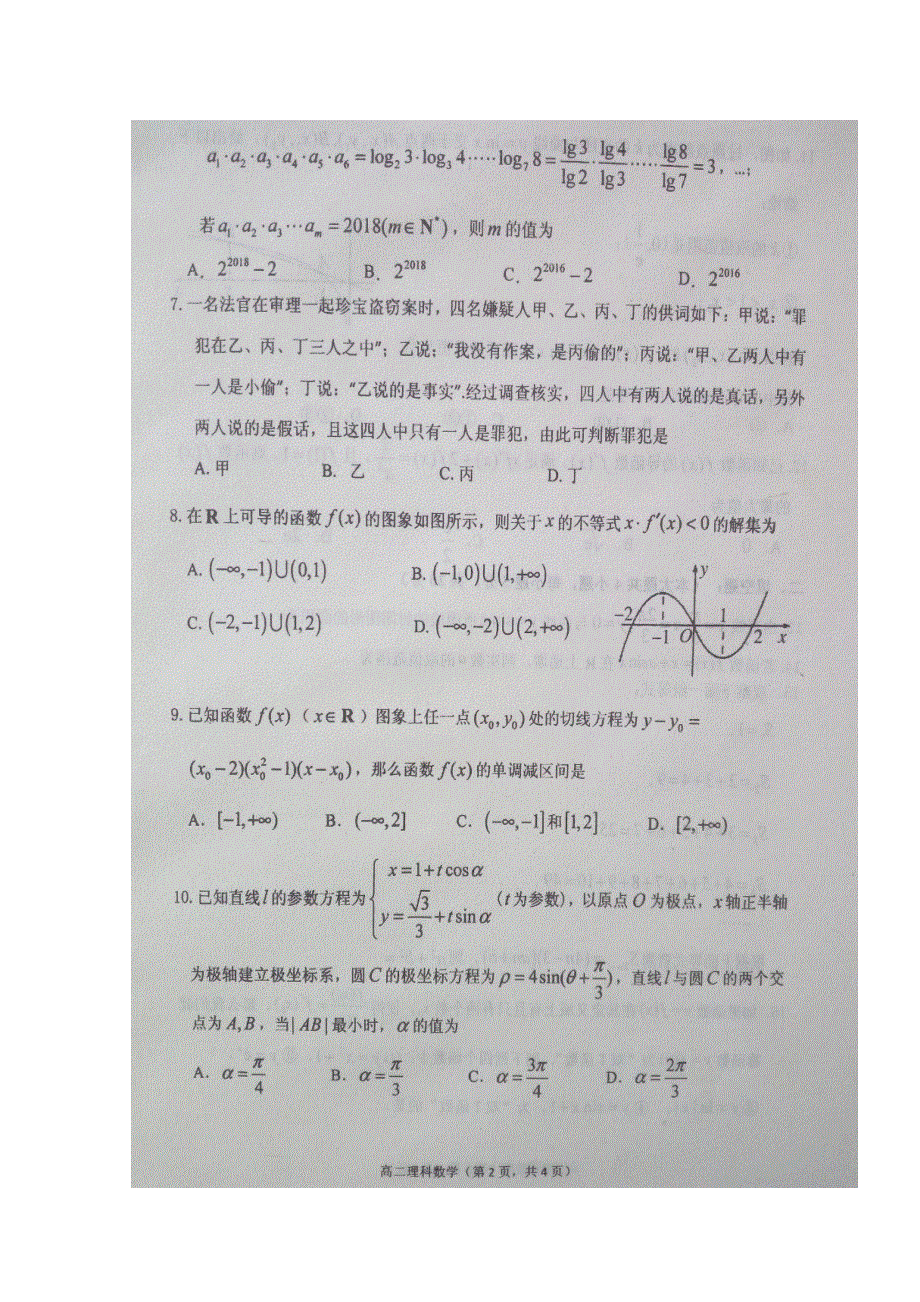 a₁·a₂·a₃·a₄·a₅·a₆=log₂3·log₃4·····log₇8=lg3/lg2·lg4/lg3·····lg8/lg7=3，…；
若a₁·a₂·a₃···aₘ=2018(m∈N*)，则m的值为
A．2²⁰¹⁸−2 B．2²⁰¹⁸ C．2²⁰¹⁶−2 D．2²⁰¹⁶
7.一名法官在审理一起珍宝盗窃案时，四名嫌疑人甲、乙、丙、丁的供词如下：甲说：“罪
犯在乙、丙、丁三人之中”；乙说：“我没有作案，是丙偷的”；丙说：“甲、乙两人中有
一人是小偷”；丁说：“乙说的是事实”.经过调查核实，四人中有两人说的是真话，另外
两人说的是假话，且这四人中只有一人是罪犯，由此可判断罪犯是
A.甲 B. 乙 C.丙 D.丁
8.在R上可导的函数f(x)的图象如图所示，则关于x的不等式x·f′(x)<0的解集为
A.(−∞,−1)∪(0,1) B.(−1,0)∪(1,+∞)
C.(−2,−1)∪(1,2) D.(−∞,−2)∪(2,+∞)
y
−2 1
−1 O 2 x
9.已知函数f(x)（x∈R）图象上任一点(x₀,y₀)处的切线方程为y−y₀=
(x₀−2)(x₀²−1)(x−x₀)，那么函数f(x)的单调减区间是
A．[−1,+∞) B．(−∞,2] C．(−∞,−1]和[1,2] D．[2,+∞)
10.已知直线l的参数方程为{x=1+tcosα y=√3/3+tsinα (t为参数)，以原点O为极点，x轴正半轴
为极轴建立极坐标系，圆C的极坐标方程为ρ=4sin(θ+π/3)，直线l与圆C的两个交
点为A,B，当|AB|最小时，α的值为
A．α=π/4 B．α=π/3 C．α=3π/4 D．α=2π/3
高二理科数学（第2页，共4页）